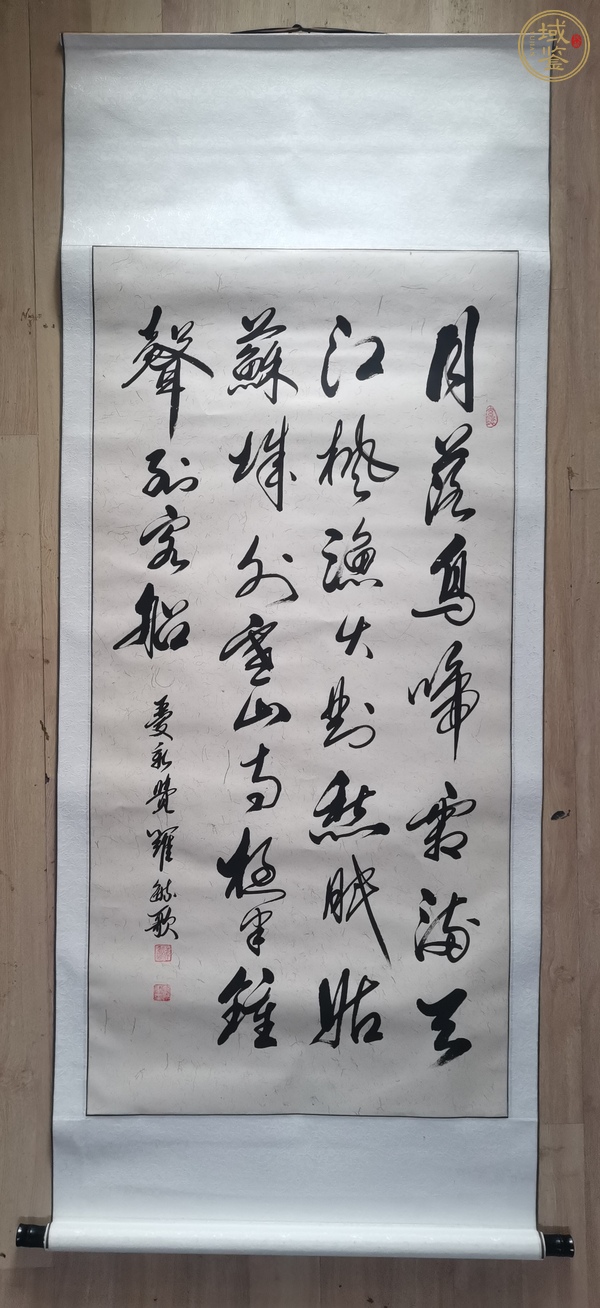 域鉴
月落烏啼霜滿天
江楓漁火對愁眠姑
蘇城外寒山寺夜半鐘
聲到客船
愛新覺羅毓歌